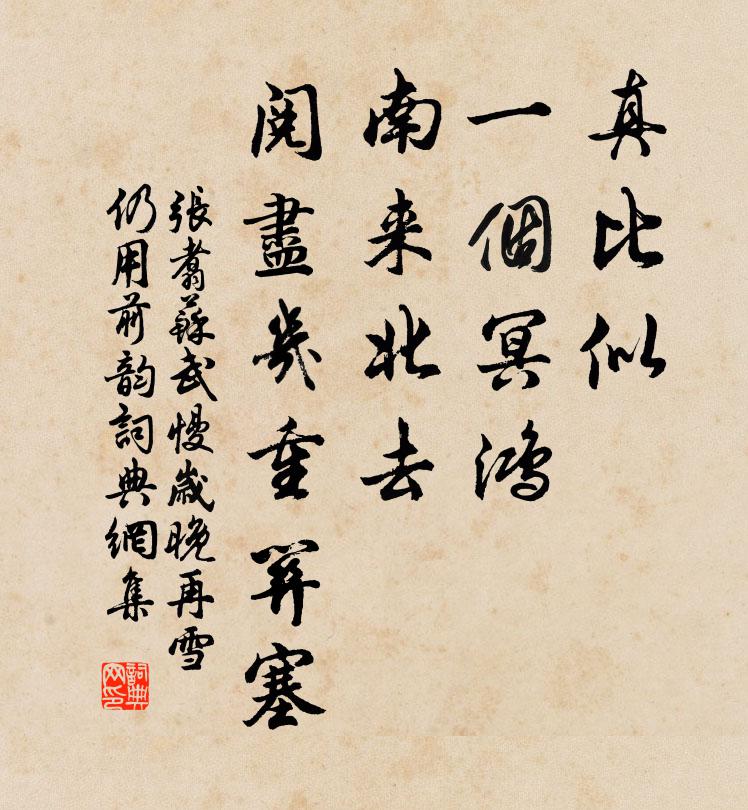 真比似
一個冥鴻
南来北去
閱盡幾重關塞
張翥蘇武慢歲晚再雪
仍用前韵詞典網集
詞典网印